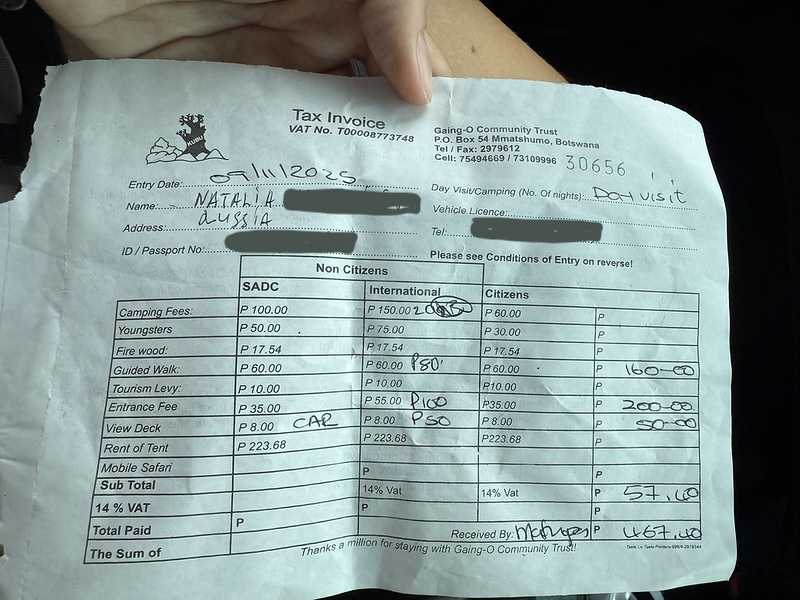 KUBU
Tax Invoice
VAT No. T00008773748
Gaing-O Community Trust
P.O. Box 54 Mmatshumo, Botswana
Tel / Fax: 2979612
Cell: 75494669 / 73109996 30656
Entry Date: 09/11/2025
Day Visit/Camping (No. Of nights): Day visit
Name: NATALIA
Vehicle Licence:
Address: Russia
Tel:
ID / Passport No:
Please see Conditions of Entry on reverse!
Non Citizens
SADC International Citizens
Camping Fees: P 100.00 P 150.00 P 60.00 P
Youngsters P 50.00 P 75.00 P 30.00 P
Fire wood: P 17.54 P 17.54 P 17.54 P
Guided Walk: P 60.00 P 60.00 P80 P 60.00 P 160-00
Tourism Levy: P 10.00 P 10.00 P10.00 P
Entrance Fee P 35.00 P 55.00 P100 P35.00 P 200-00
View Deck P 8.00 CAR P 8.00 P50 P 8.00 P 50-00
Rent of Tent P 223.68 P 223.68 P223.68 P
Mobile Safari P P
Sub Total 14% Vat 14% Vat P 57,40
14 % VAT P P
Total Paid P Received By: P 467,40
The Sum of
Thanks a million for staying with Gaing-O Community Trust!